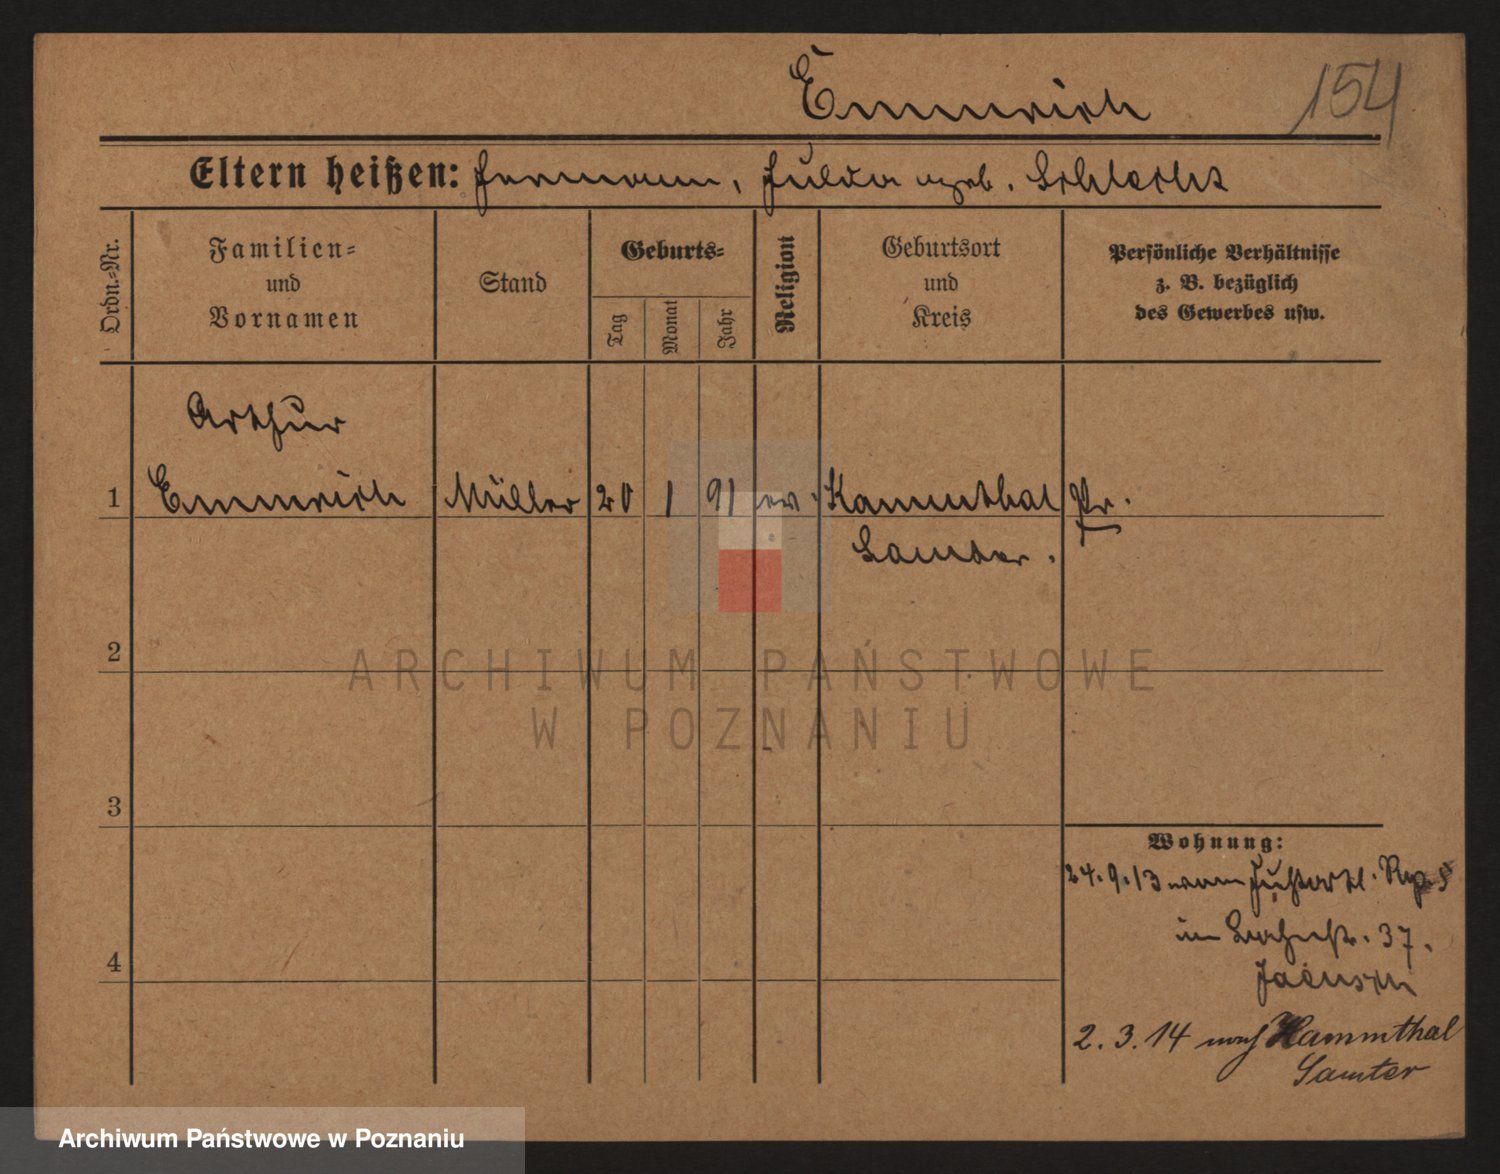 Emmrich
154
Eltern heißen: Hermann, Hulda geb. Schlecht
Ordn.-Nr.
Familien-
und
Vornamen
Stand
Geburts-
Tag
Monat
Jahr
Religion
Geburtsort
und
Kreis
Persönliche Verhältnisse
z. B. bezüglich
des Gewerbes usw.
Arthur
1 Emmrich Müller 20 1 91 ev. Kammthal Pr.
Samter.
2
ARCHIWUM PAŃSTWOWE
W POZNANIU
3
Wohnung:
24.9.13 vom Fußartl. Rg. 5
in 37.
4
2.3.14 nach Kammthal
Samter
Archiwum Państwowe w Poznaniu